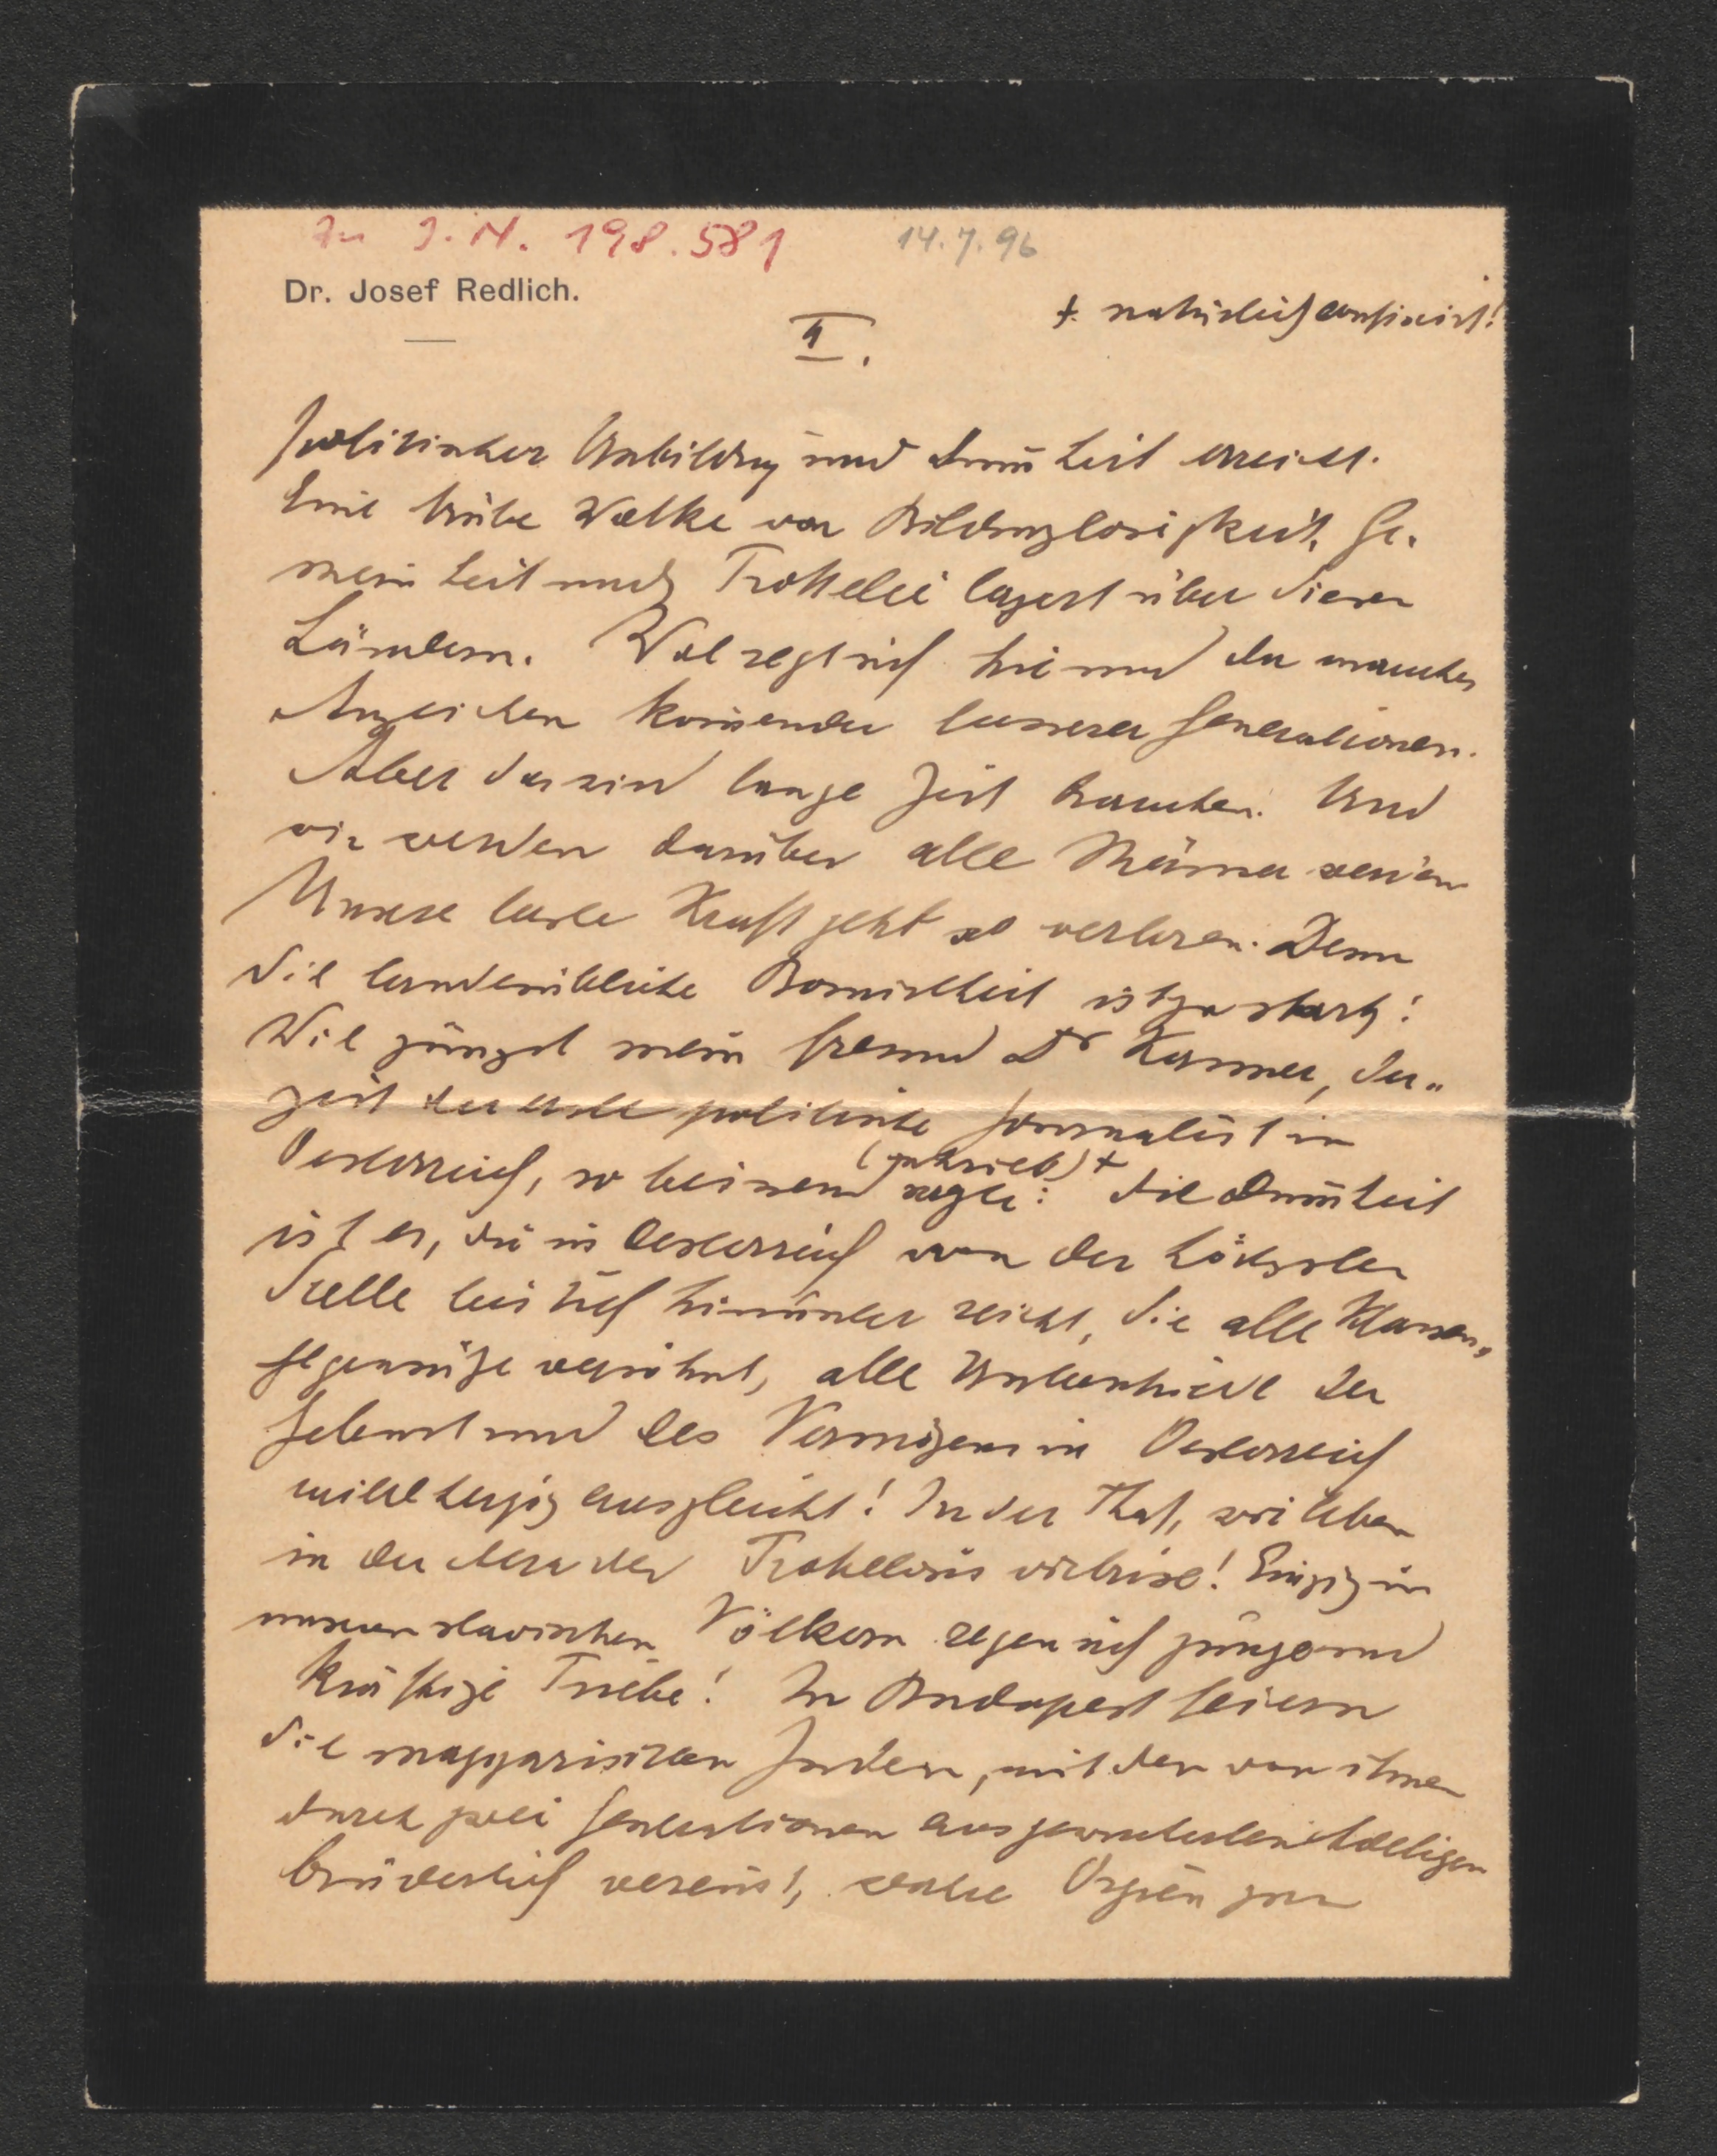 Zu I.N. 198.581
14.7.96
Dr. Josef Redlich.
II.
+ natürlich confiscirt!
politischer Unbildung und Dum̄heit erreicht.
Eine trübe Wolke von Bildungslosigkeit, Ge-
meinheit und Trottelei lagert über diesen
Ländern. Wol regt sich hie und da manches
Anzeichen kom̄ender besserer Generationen.
Aber das wird lange Zeit brauchen. Und
wir werden darüber alle Männer werden
Unsere beste Kraft geht so verloren. Denn
die landesübliche Bornirtheit ist zu stark!
Wie jüngst mein Freund Dr Kanner, der-
zeit der erste politische Journalist in
Oesterreich, so beissend sagte: (schrieb)+ die Dum̄heit
ist es, die in Oesterreich von der höchsten
Stelle bis tief hinunter reicht, die alle Klassen-
gegensätze versöhnt, alle Unterschiede der
Geburt und des Vermögens in Oesterreich
mildherzig ausgleicht! In der That, wir leben
in der Aera der Trottelosis! Einzig in
unseren slavischen Völkern regen sich junge und
kräftige Triebe! In Budapest feiern
die magyarisirten Juden, mit den von ihnen
durch zwei Generationen ausgewucherten Adeligen
brüderlich vereint, wahre Orgien zur